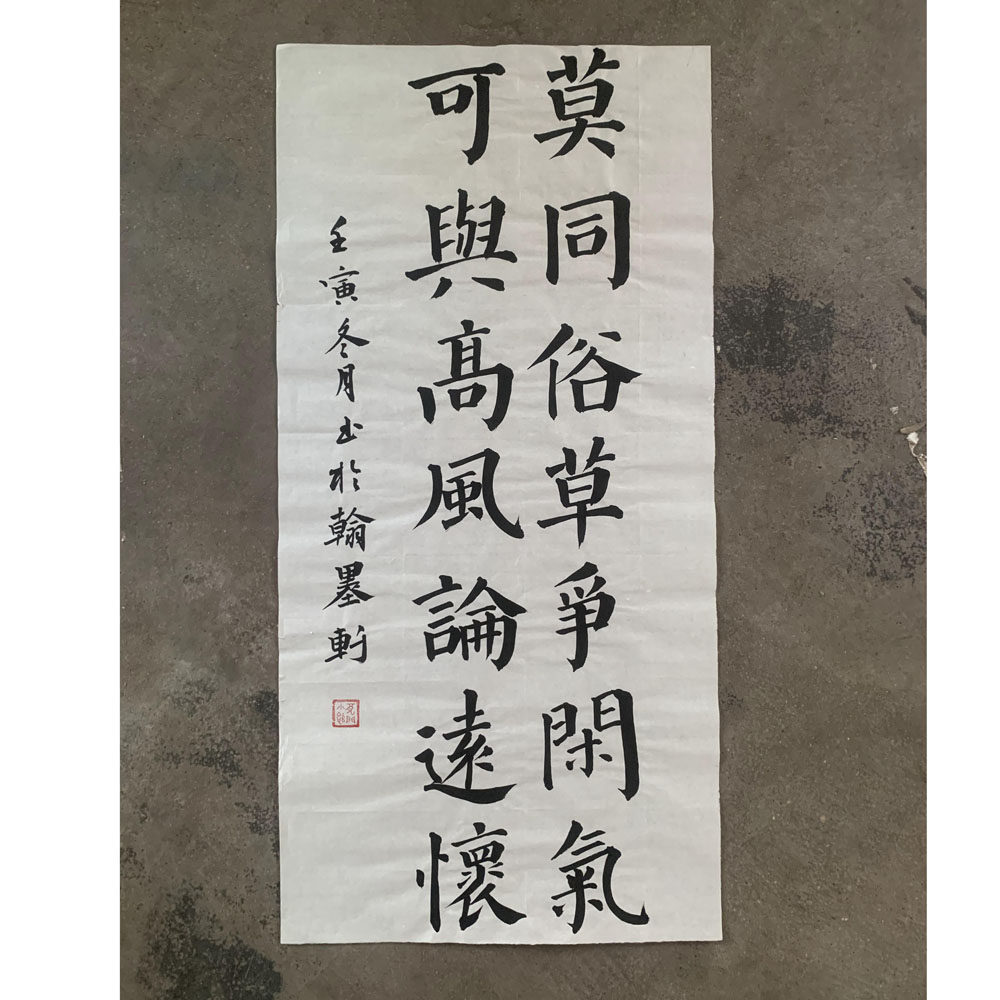 莫同俗草爭閑氣
可與高風論遠懷
壬寅冬月书於翰墨軒